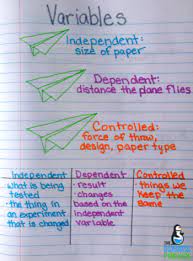 Variables
Independent:
size of paper
Dependent:
distance the plane flies
Controlled:
force of throw,
design, paper type
Independent
what is being
tested
· the thing in
an experiment
that is changed
Dependent
· result
· changes
based on the
independent
variable
Controlled
· things we
keep the
same
THE